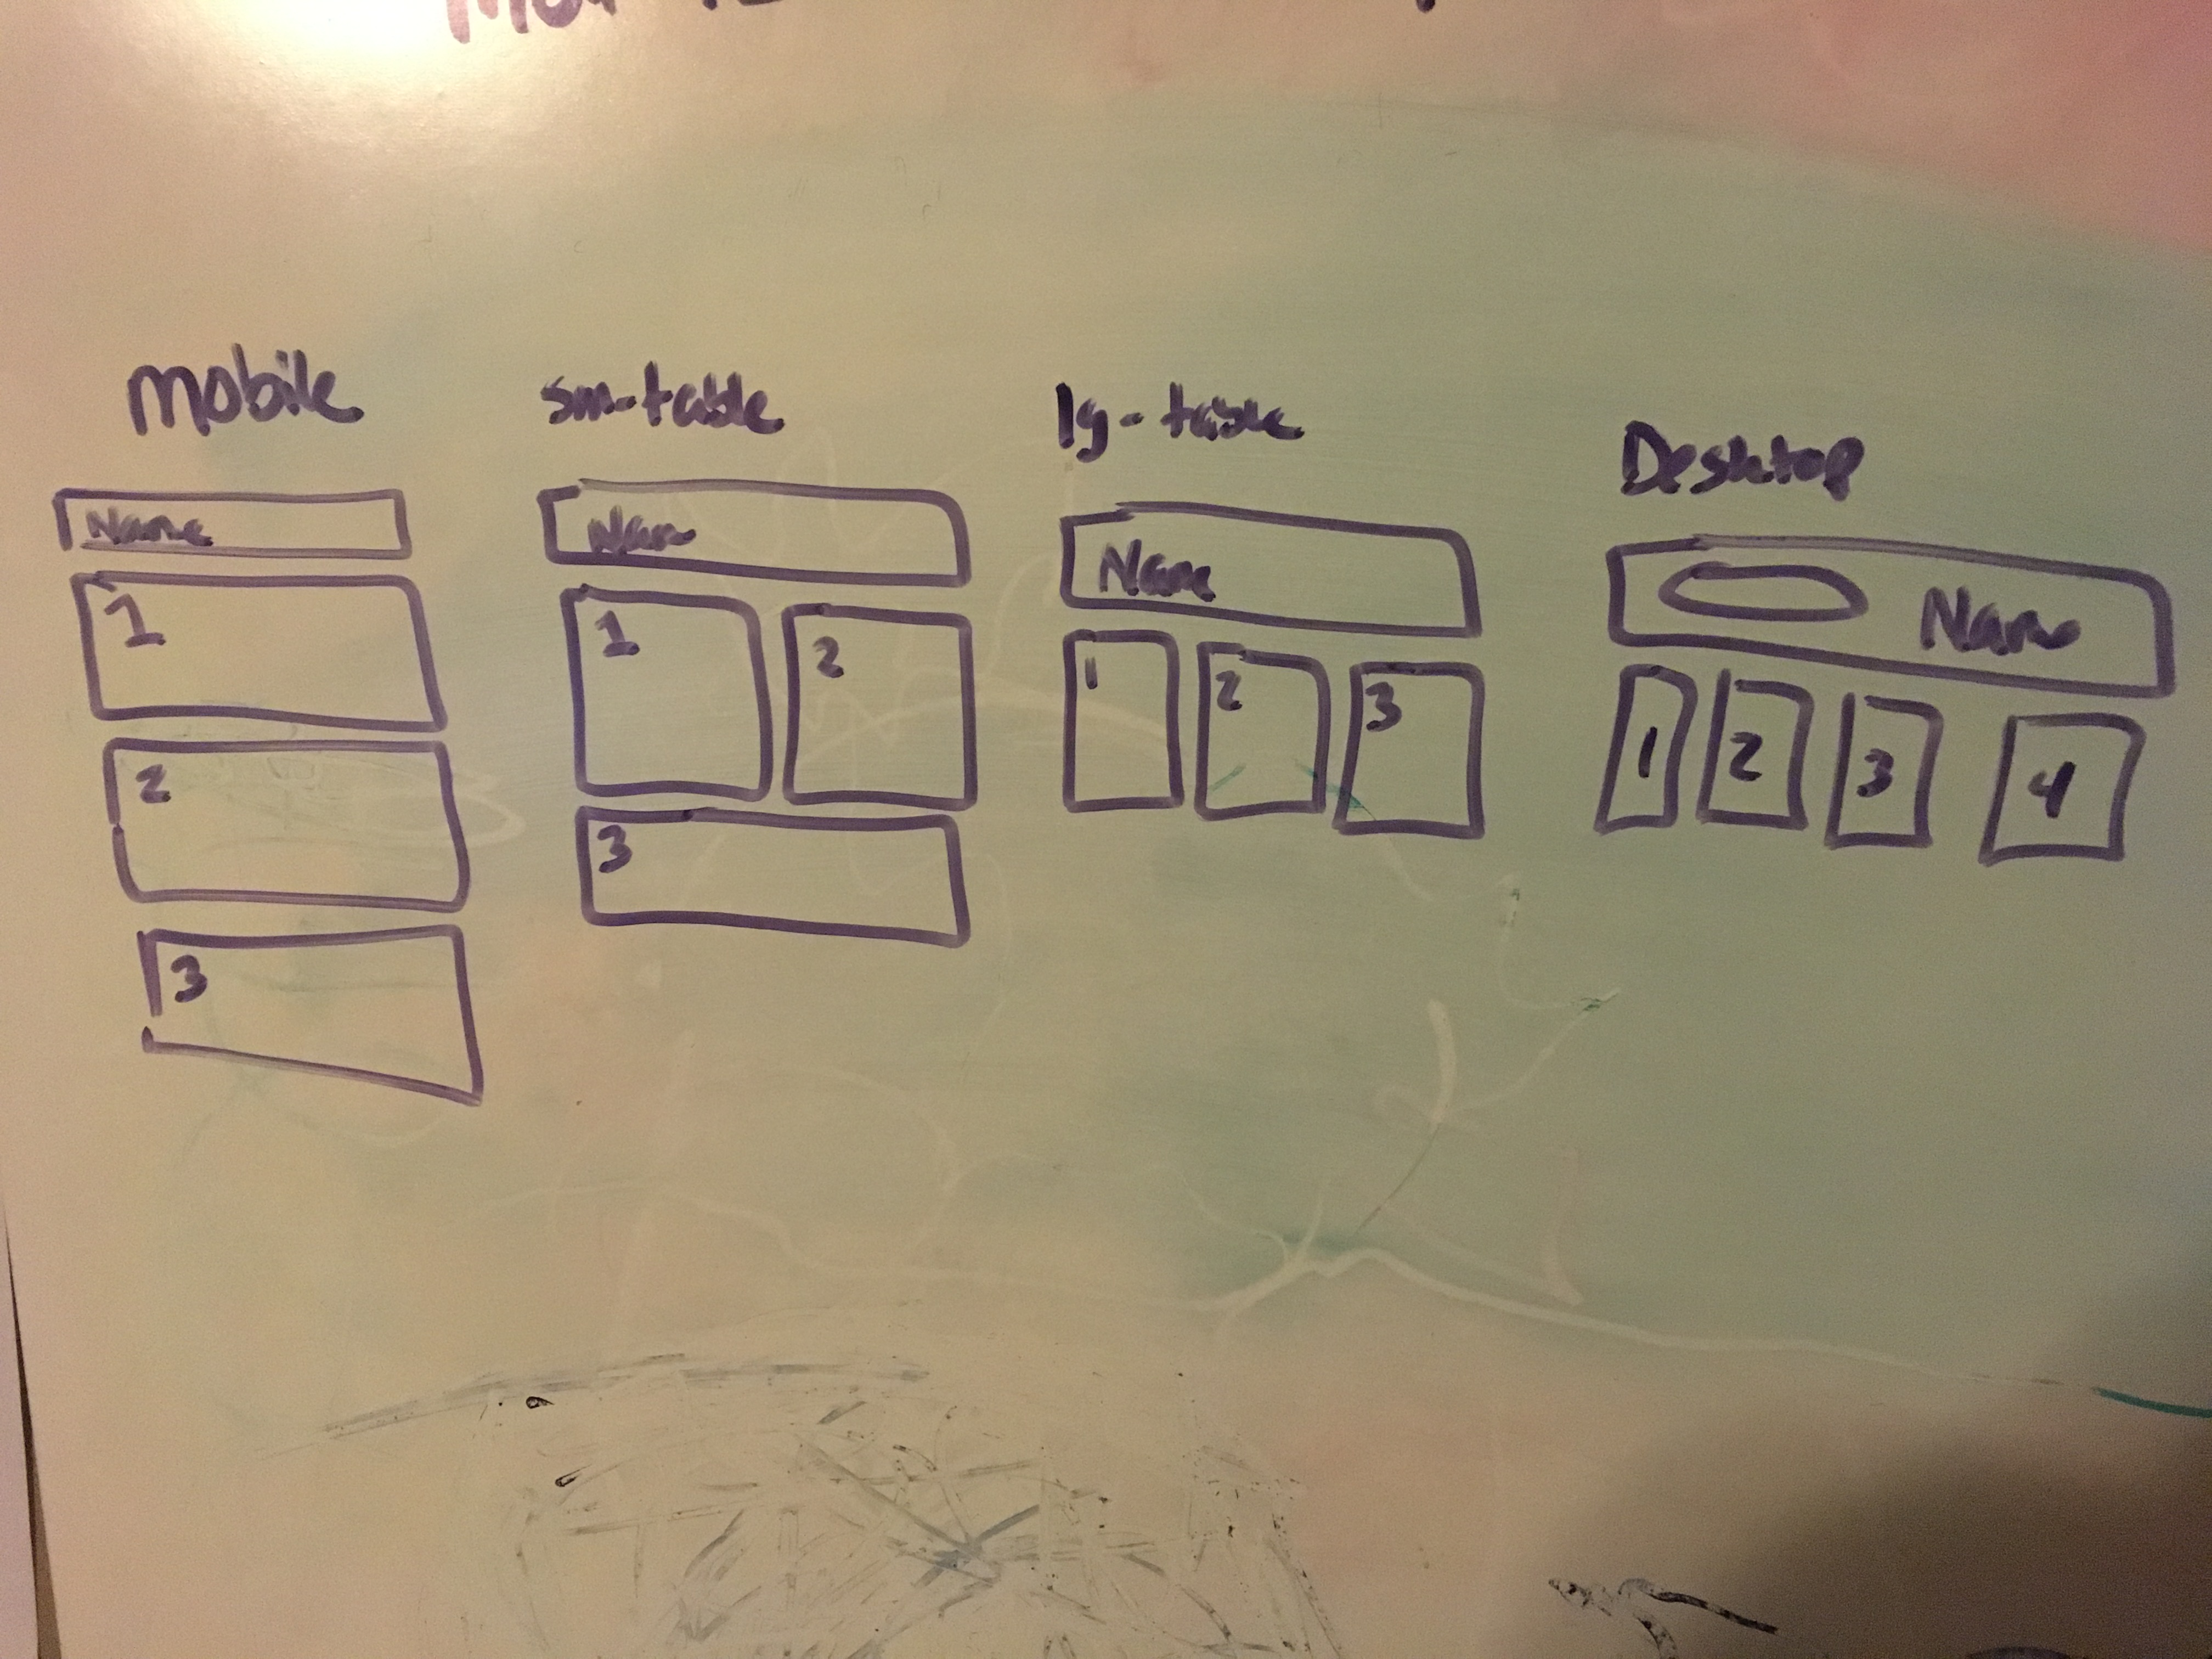 mobile
Name
1
2
3
sm-table
Nam
1
2
3
lg-table
Name
1
2
3
Desktop
Name
1
2
3
4